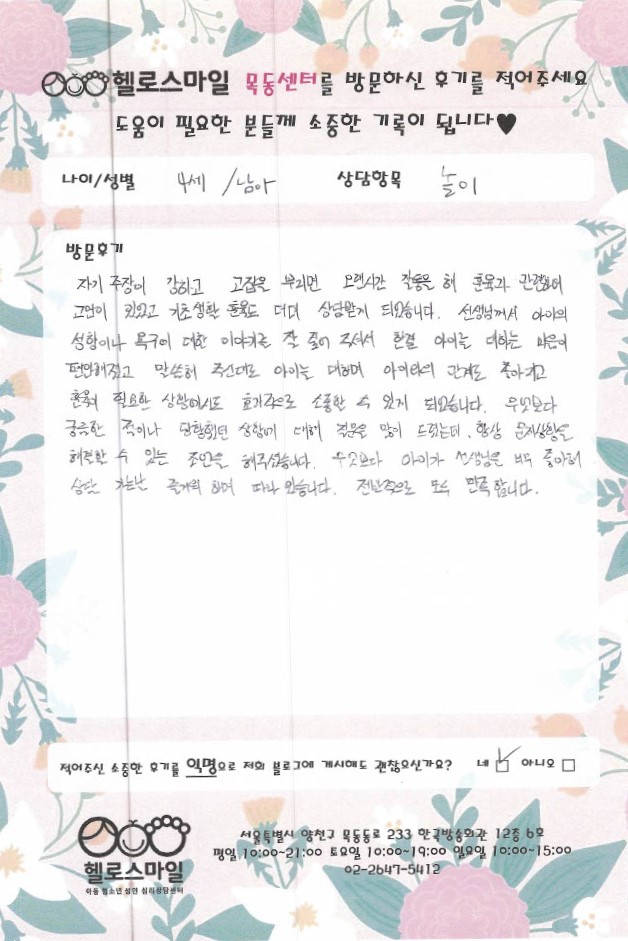 헬로스마일 목동센터를 방문하신 후기를 적어주세요
도움이 필요한 분들께 소중한 기록이 됩니다♥
나이/성별 4세 /남아 상담항목 놀이
방문후기
자기 주장이 강하고 고집을 부리면 오랜시간 갈등을 해 훈육과 관련하여
고민이 되었고 기초생활 훈육도 더뎌 상담받게 되었습니다. 선생님께서 아이의
성향이나 욕구에 대한 이야기를 잘 주셔서 한결 아이를 대하는 마음이
편안해졌고 말씀해 주신대로 아이를 대하며 아이와의 관계도 좋아지고
훈육이 필요한 상황에서도 효과적으로 소통할 수 있게 되었습니다. 무엇보다
궁금한 점이나 당황했던 상황에 대해 질문을 많이 드렸는데, 항상 문제상황을
해결할 수 있는 조언을 해주셨습니다. 무엇보다 아이가 선생님을 너무 좋아해
상담 가는날 즐거워 하며 따라 왔습니다. 전반적으로 모두 만족합니다.
적어주신 소중한 후기를 익명으로 저희 블로그에 게시해도 괜찮으신가요? 네 아니오
헬로스마일
아동 청소년 성인 심리상담센터
서울특별시 양천구 목동동로 233 한국방송회관 12층 6호
평일 10:00~21:00 토요일 10:00~19:00 일요일 10:00~15:00
02-2647-5412